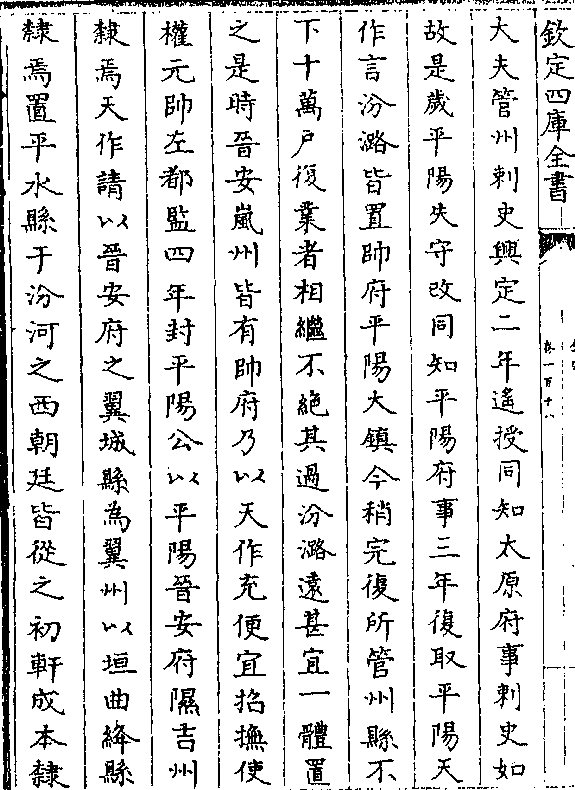 欽定四庫全書
大夫管州刺史興定二年遙授同知太原府事刺史如
故是歲平陽失守改同知平陽府事三年復取平陽天
作言汾潞皆置帥府平陽大鎮今稍完復所管州縣不
下十萬戸復業者相繼不絶其過汾潞遠甚宜一體置
之是時晉安嵐州皆有帥府乃以天作充便宜招撫使
權元帥左都監四年封平陽公以平陽晉安府隰吉州
隸焉天作請以晉安府之翼城縣為翼州以垣曲絳縣
隸焉置平水縣于汾河之西朝廷皆從之初軒成本隸